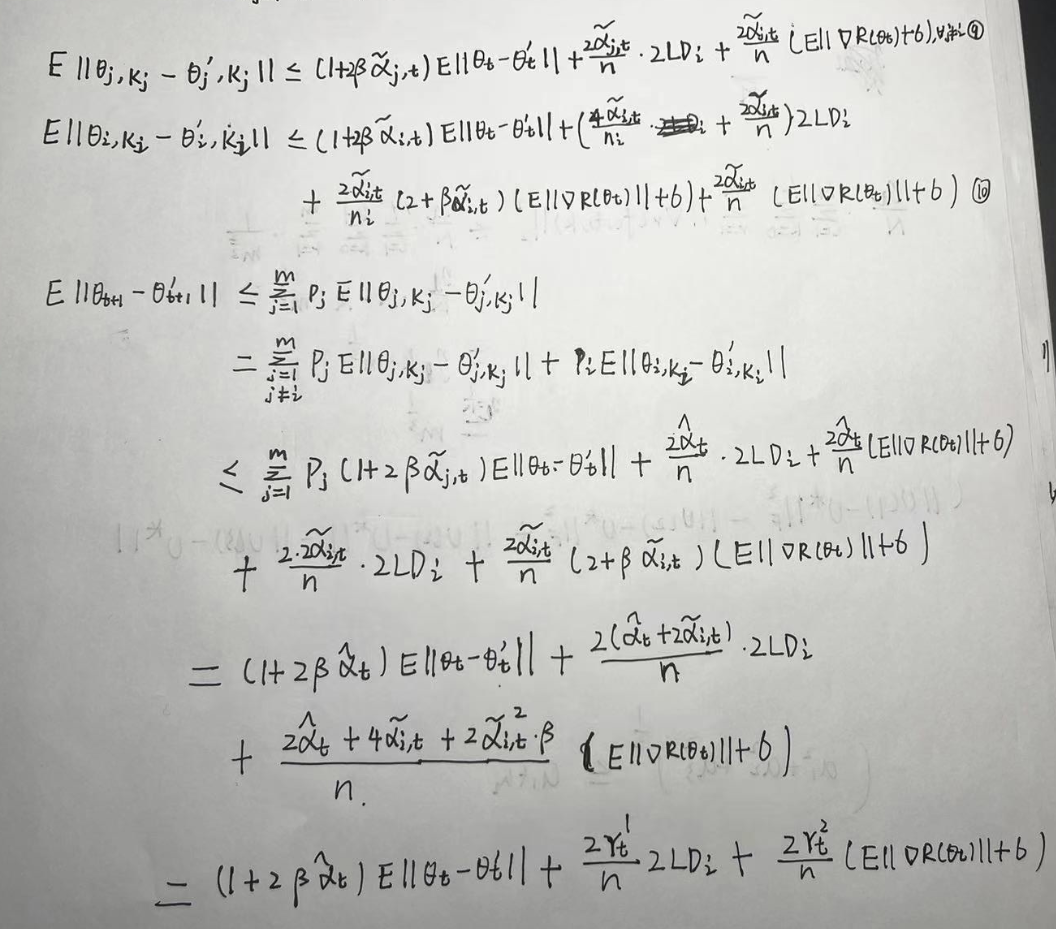 E||θj,Kj − θj',Kj|| ≤ (1+2β α̃j,t) E||θt−θt'|| + 2α̃j,t/n · 2LDi + 2α̃j,t/n (E||∇R(θt)+6), ∀j≠i ⑨
E||θi,Ki − θi',Ki|| ≤ (1+2β α̃i,t) E||θt−θt'|| + (4α̃i,t/ni + 2α̃i,t/n) 2LDi
+ 2α̃i,t/ni (2+βα̃i,t) (E||∇R(θt)||+6) + 2α̃i,t/n (E||∇R(θt)||+6) ⑩
E||θt+1 − θ't+1|| ≤ Σ_{j=1}^{m} Pj E||θj,Kj − θj',Kj||
= Σ_{j=1, j≠i}^{m} Pj E||θj,Kj − θ'j,Kj|| + Pi E||θi,Ki − θ'i,Ki||
≤ Σ_{j=1}^{m} Pj (1+2βα̃j,t) E||θt−θt'|| + 2α̂t/n · 2LDi + 2α̂t/n (E||∇R(θt)||+6)
+ 2·2α̃i,t/n · 2LDi + 2α̃i,t/n (2+β α̃i,t) (E||∇R(θt)||+6)
= (1+2β α̂t) E||θt−θt'|| + 2(α̂t+2α̃i,t)/n · 2LDi
+ 2α̂t + 4α̃i,t + 2α̃i,t²·β/n. (E||∇R(θt)||+6)
= (1+2 β α̂t) E||θt−θt'|| + 2γt¹/n 2LDi + 2γt²/n (E||∇R(θt)||+6)